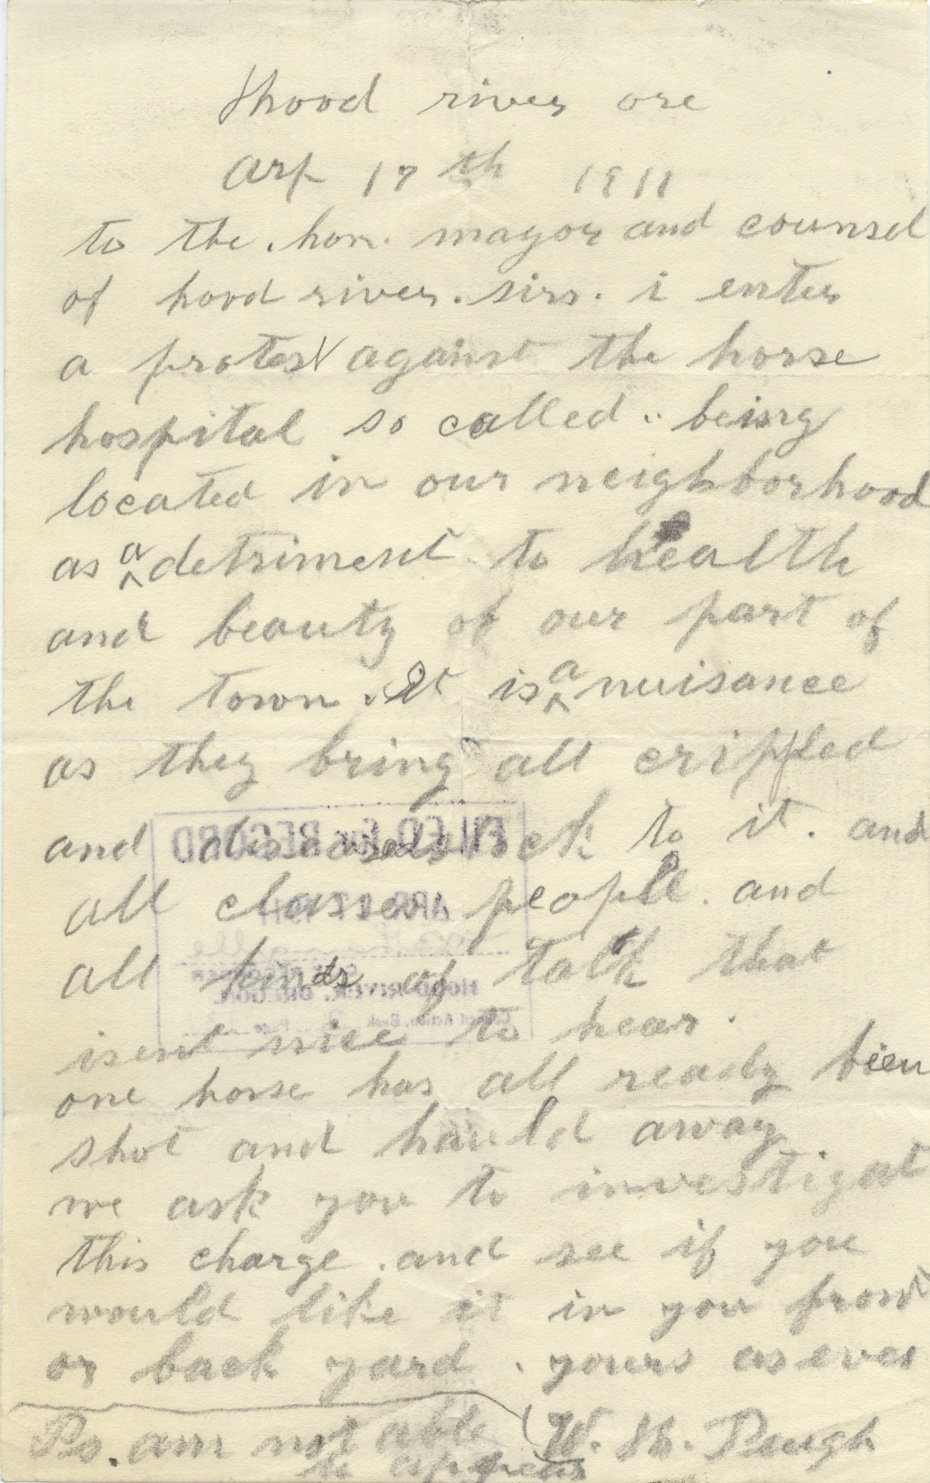 Hood river ore
Arp 17th 1911
to the . hon. mayor and counsel
of hood river. sirs. i enter
a protest against the horse
hospital so called .. being
located in our neighborhood
as a detriment to health
and beauty of our part of
the town . It is a nuisance
as they bring all crippled
and diseased stock to it . and
all classes people . and
all kinds of talk that
isent nice to hear .
one horse has all ready bien
shot and hauld away
we ask you to investigat
this charge . and see if you
would like it in you front
or back yard . yours as ever
W. H. Peugh
Ps. am not able
to appear
FILED FOR RECORD
APR 17 1911
HOOD RIVER, OREGON.